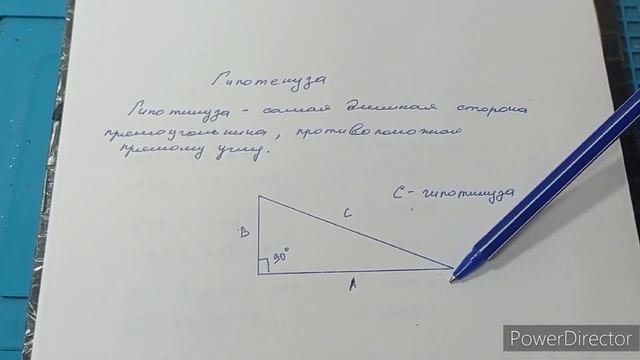 Гипотенуза
Гипотинуза - самая длинная сторона
прямоугольника, противоположная
прямому углу.
C - гипотинуза
B
C
90°
A
PowerDirector